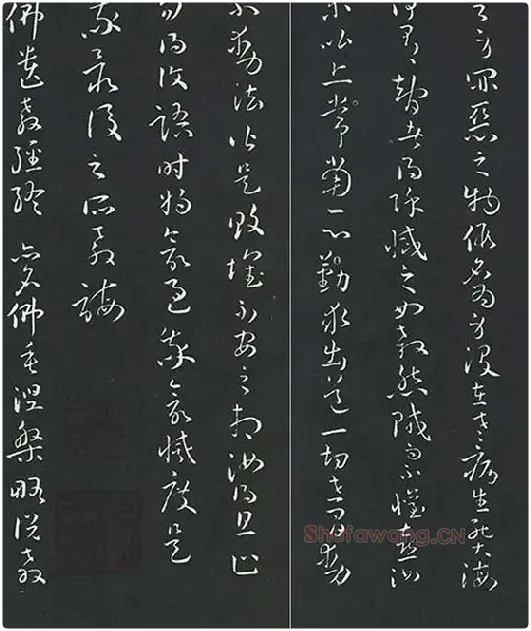 罪惡之物假名為身沒在老病生死大海
有智者得除滅之如殺怨賊而不懽喜汝
常當一心勤求出道一切世間動
不動法皆是敗壞不安之相汝等且止
勿得復語時將欲過我欲滅度是
我最後之所教誨
佛遺教經終 亦名佛垂涅槃略說教
Shufawang.CN